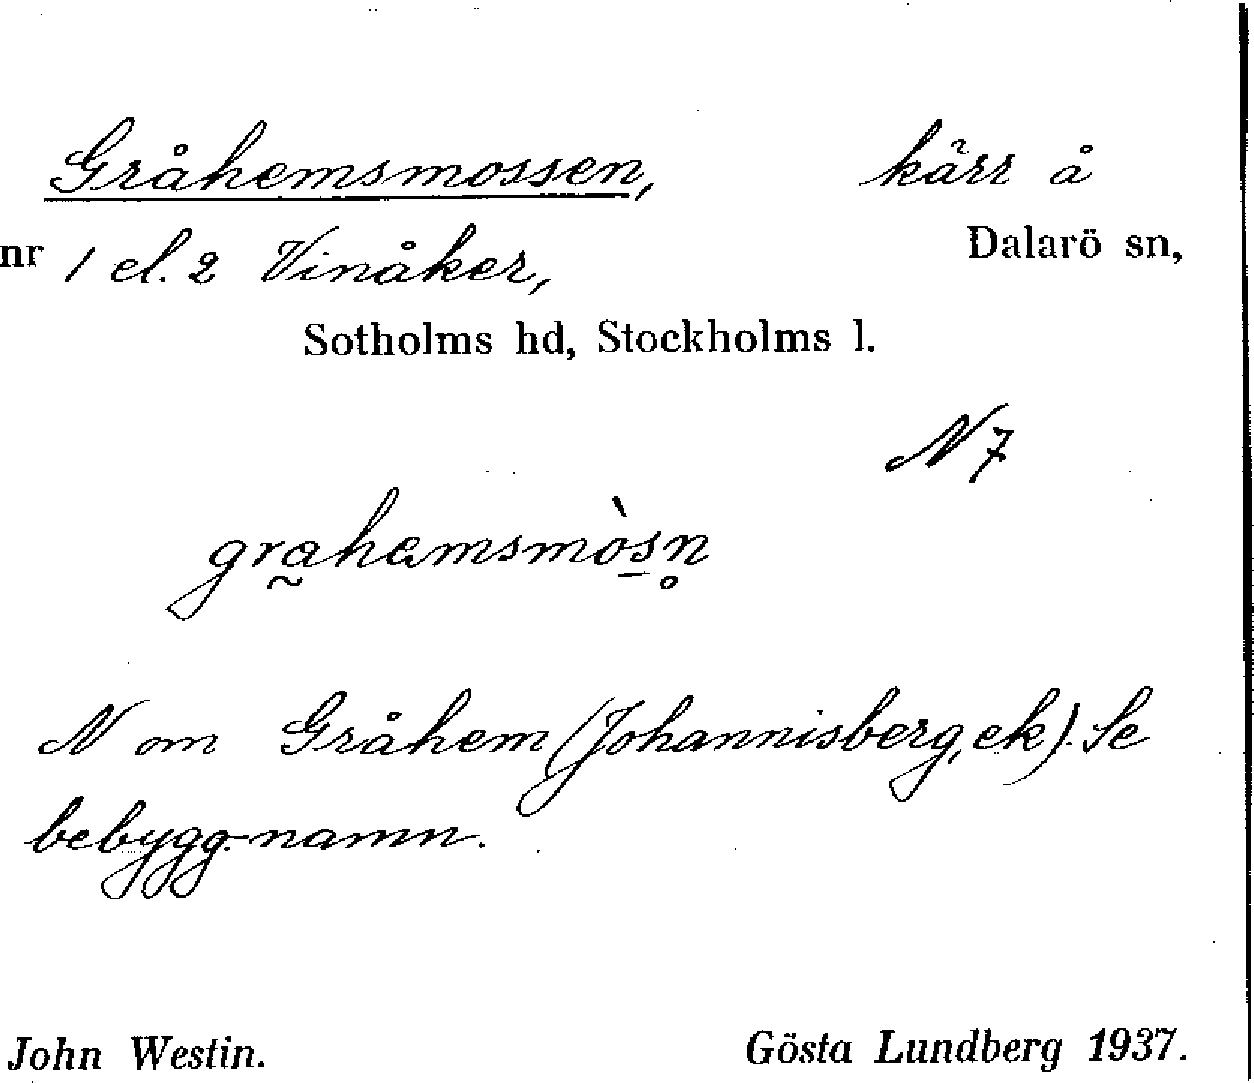 Gråhemsmossen, kärr å
nr 1 el. 2 Vinåker, Dalarö sn,
Sotholms hd, Stockholms l.
N 7
gra̰hemsmòs̠n̥
N om Gråhem (Johannisberg, ek). Se
bebygg.namn.
John Westin. Gösta Lundberg 1937.